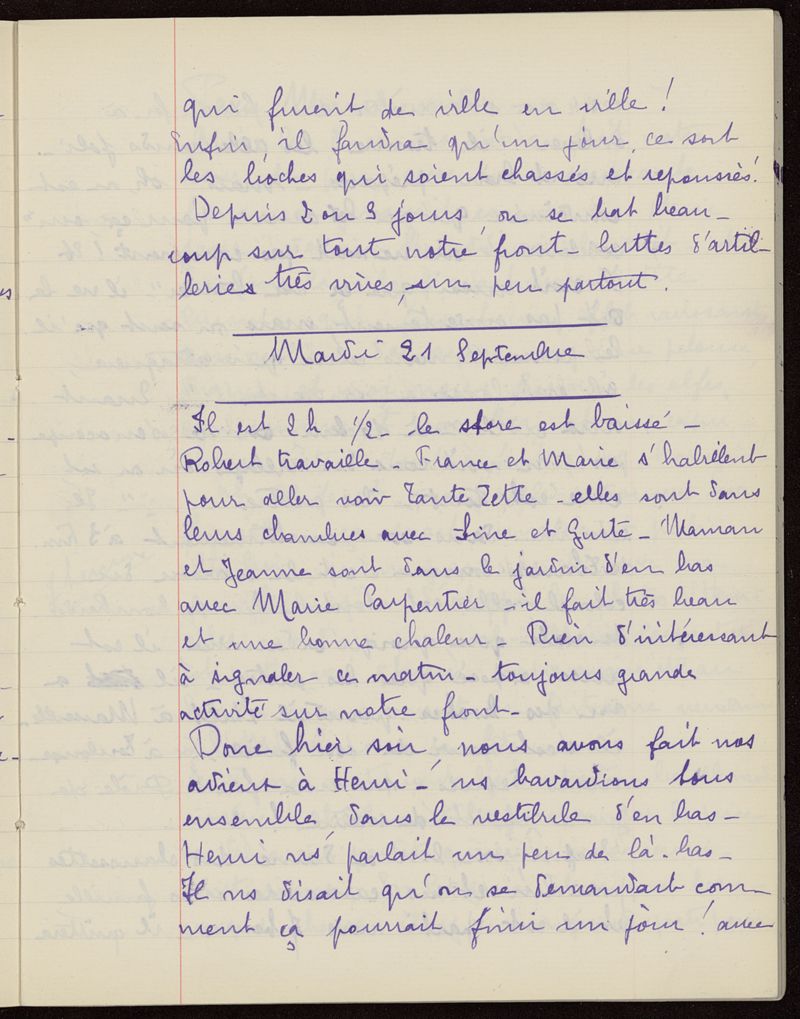 qui fuient de ville en ville !
Enfin, il faudra qu'un jour, ce sont
les boches qui soient chassés et repoussés !
Depuis 2 ou 3 jours, on se bat beau-
coup sur tout notre front - luttes d'artil-
leries très vives, un peu partout.
Mardi 21 Septembre
Il est 2 h 1/2 - le store est baissé -
Robert travaille - France et Marie s'habillent
pour aller voir Tante Zette - elles sont dans
leurs chambres avec Line et Guite - Maman
et Jeanne sont dans le jardin d'en bas
avec Marie Carpentier - il fait très beau
et une bonne chaleur - Rien d'intéressant
à signaler ce matin - toujours grande
activité sur notre front -
Donc hier soir, nous avons fait nos
adieux à Henri - ns bavardions tous
ensemble, dans le vestibule d'en bas -
Henri ns parlait un peu de là-bas -
Il ns disait qu'on se demandait com-
ment ça pourrait finir un jour ! avec